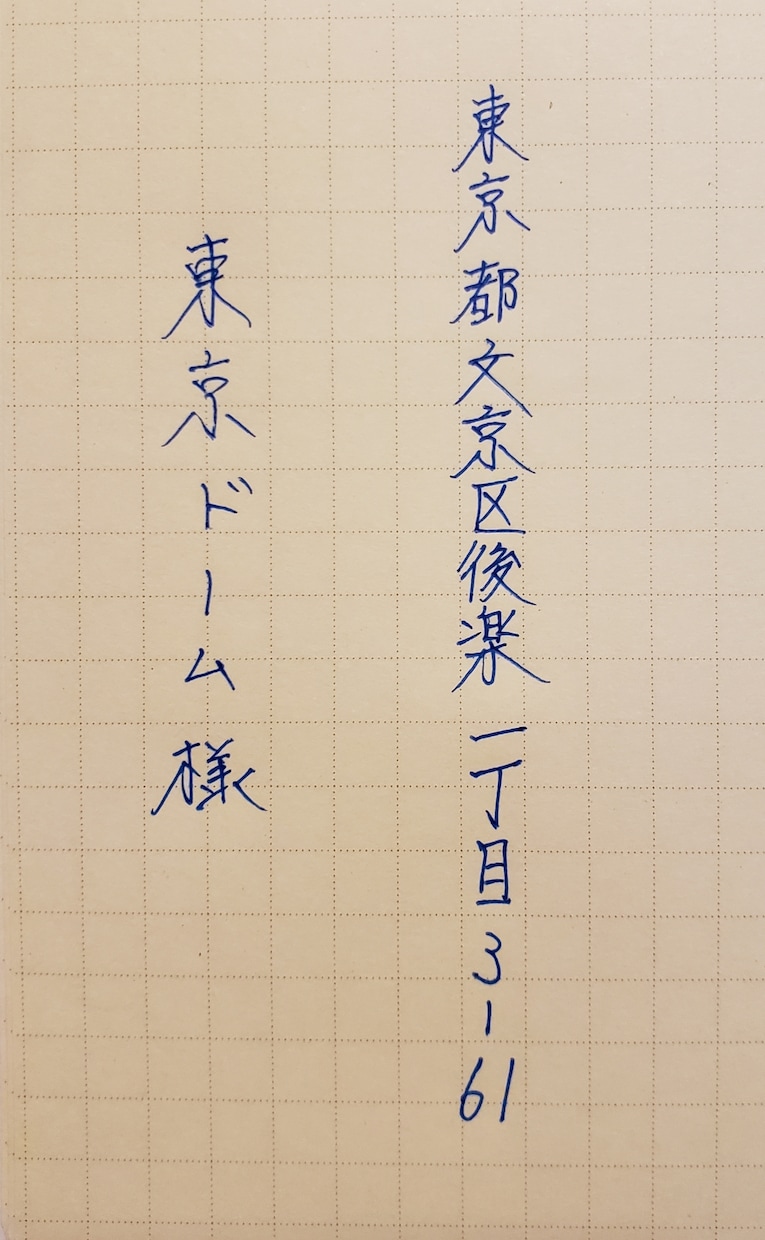 東京都文京区後楽一丁目3-61
東京ドーム様